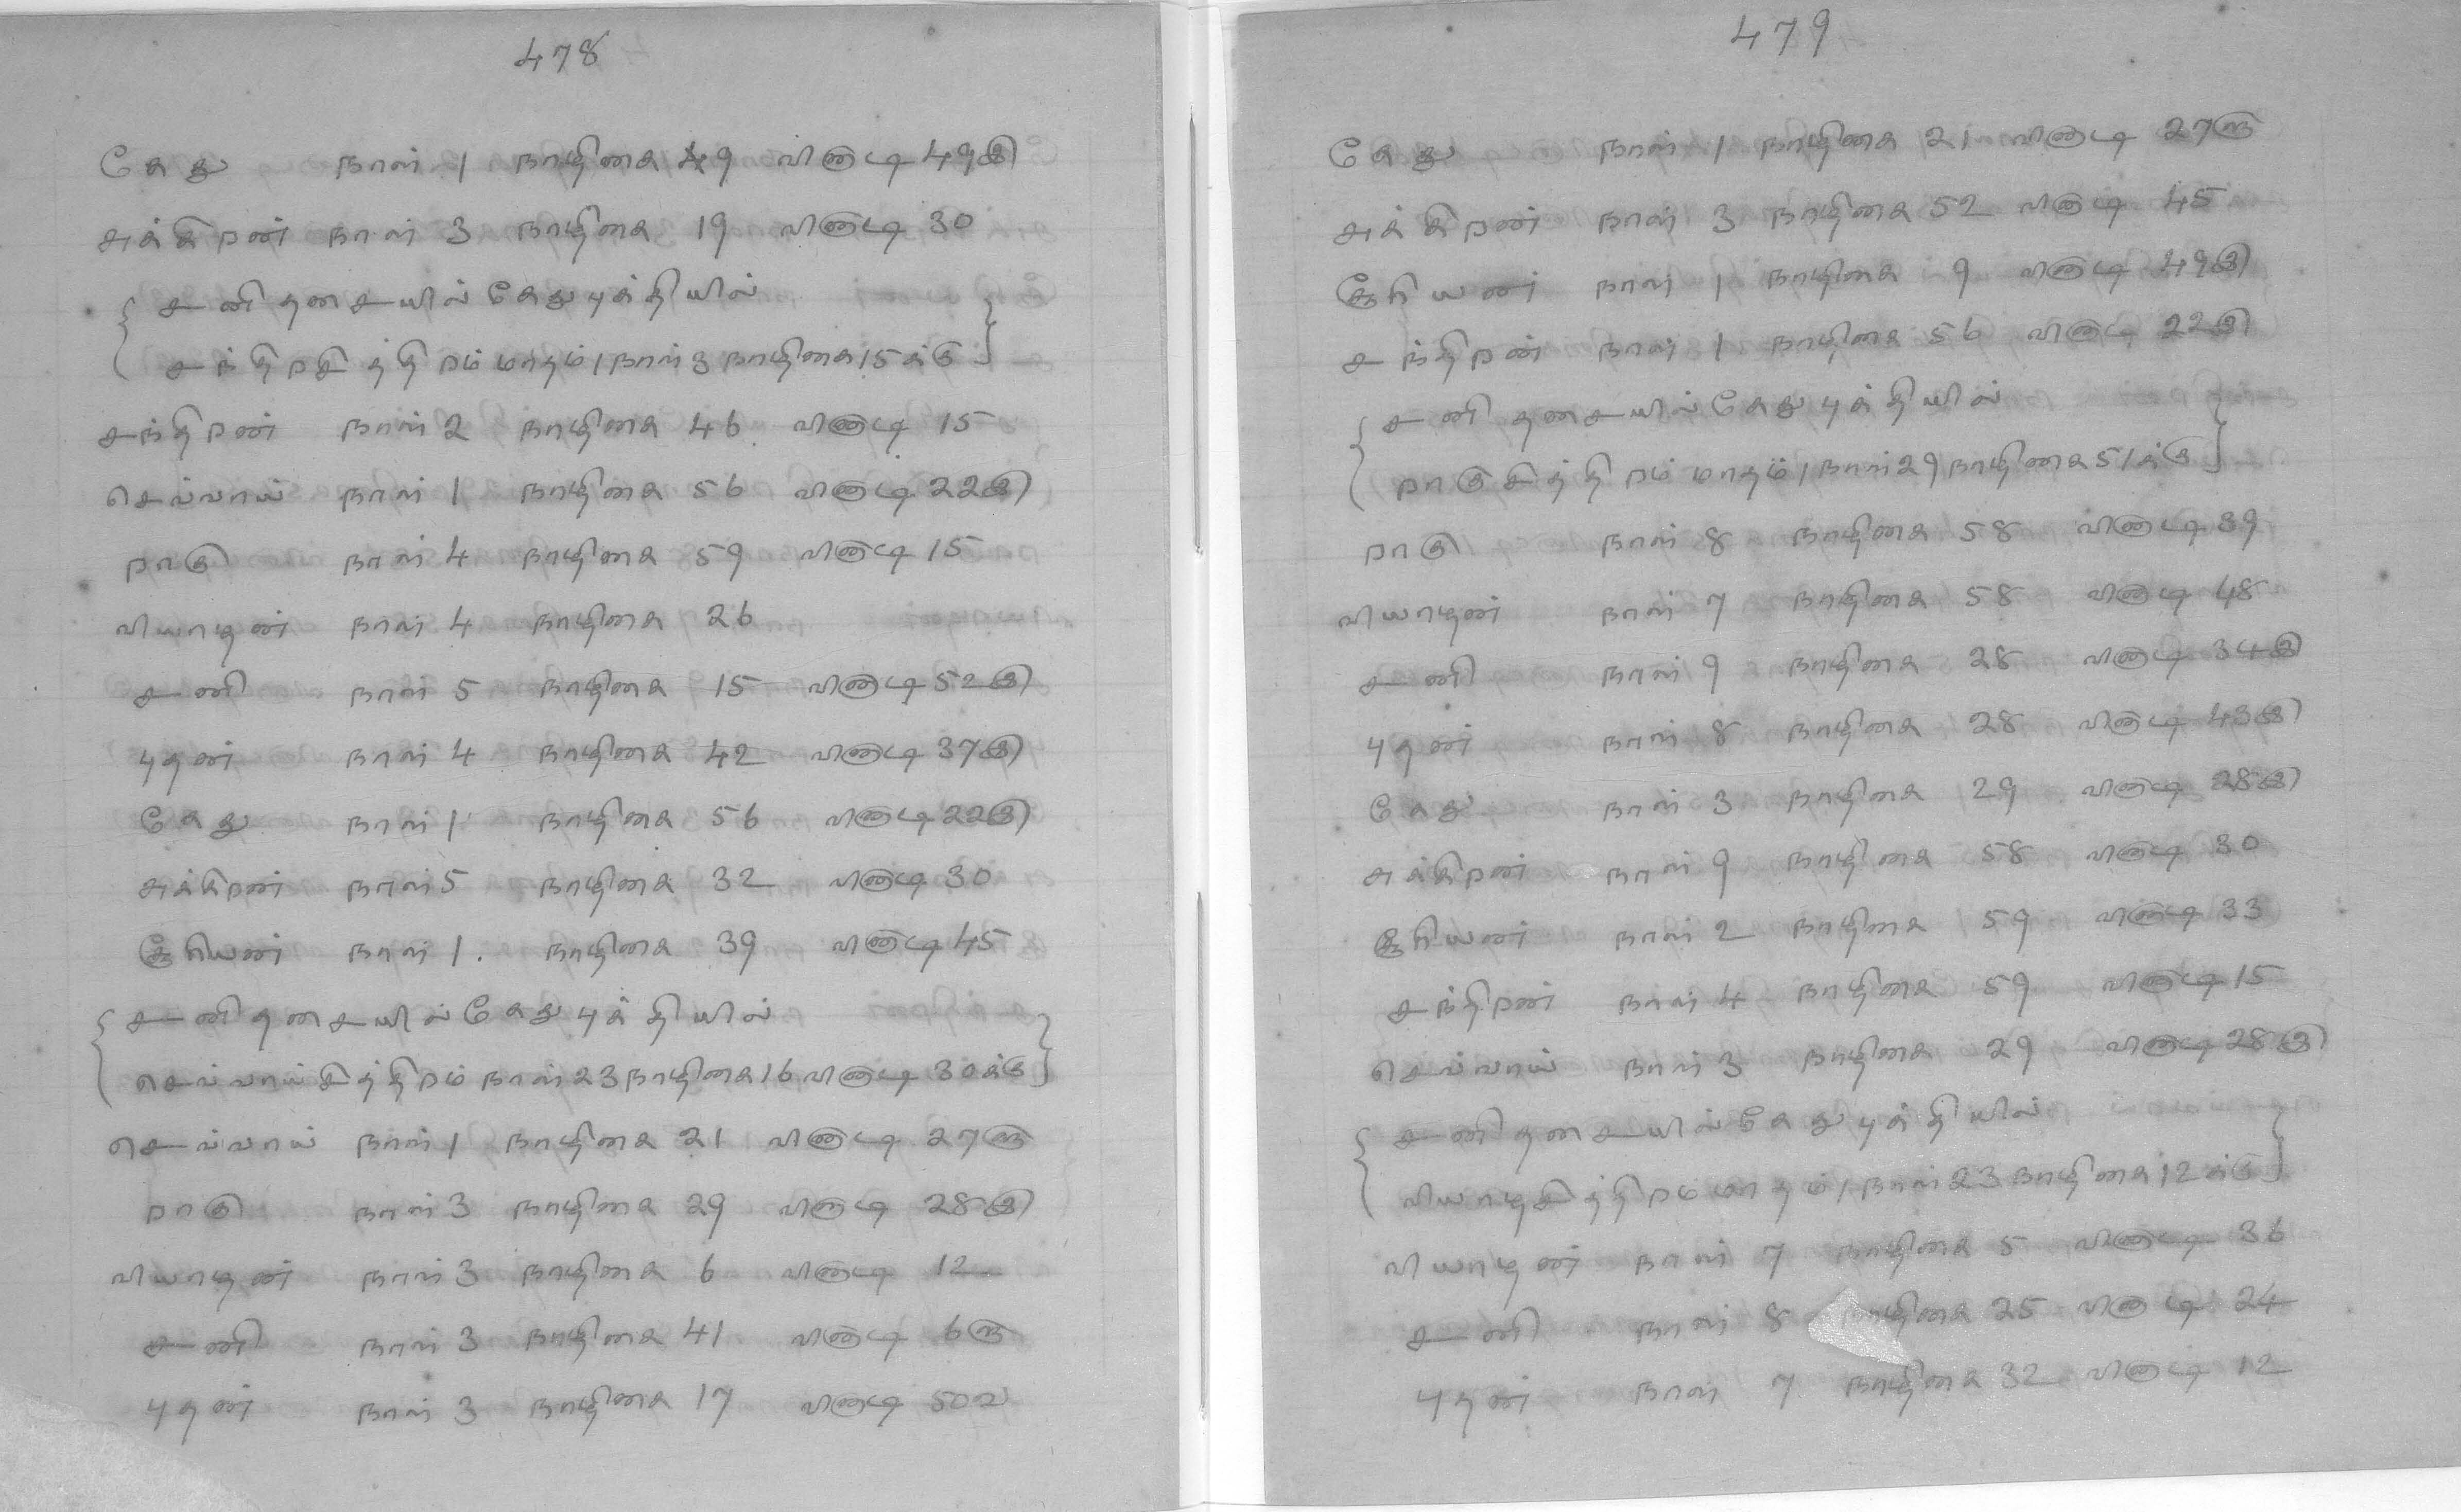 478
கேது நாள் 1 நாழிகை 49 வினாடி 49𑿑
சுக்கிறன் நாள் 3 நாழிகை 19 வினாடி 30
{ சனி தசையில் கேது புக்தியில்
சந்திறசித்திறம் மாதம் 1 நாள் 3 நாழிகை 15 க்கு }
சந்திறன் நாள் 2 நாழிகை 46 வினாடி 15
செவ்வாய் நாள் 1 நாழிகை 56 வினாடி 22𑿑
றாகு நாள் 4 நாழிகை 59 வினாடி 15
வியாழன் நாள் 4 நாழிகை 26
சனி நாள் 5 நாழிகை 15 வினாடி 52𑿑
புதன் நாள் 4 நாழிகை 42 வினாடி 37𑿑
கேது நாள் 1 நாழிகை 56 வினாடி 22𑿑
சுக்கிறன் நாள் 5 நாழிகை 32 வினாடி 30
சூரியன் நாள் 1. நாழிகை 39 வினாடி 45
{ சனி தசையில் கேது புக்தியில்
செவ்வாய் சித்திறம் நாள் 23 நாழிகை 16 வினாடி 30 க்கு }
செவ்வாய் நாள் 1 நாழிகை 21 வினாடி 27𑿓
றாகு நாள் 3 நாழிகை 29 வினாடி 28𑿑
வியாழன் நாள் 3 நாழிகை 6 வினாடி 12
சனி நாள் 3 நாழிகை 41 வினாடி 6𑿓
புதன் நாள் 3 நாழிகை 17 வினாடி 50வ
479
கேது நாள் 1 நாழிகை 21 வினாடி 27𑿓
சுக்கிறன் நாள் 3 நாழிகை 52 வினாடி 45
சூரியன் நாள் 1 நாழிகை 9 வினாடி 49𑿑
சந்திறன் நாள் 1 நாழிகை 56 வினாடி 22𑿑
{ சனி தசையில் கேது புக்தியில்
றாகு சித்திறம் மாதம் 1 நாள் 29 நாழிகை 51 க்கு }
றாகு நாள் 8 நாழிகை 58 வினாடி 39
வியாழன் நாள் 7 நாழிகை 58 வினாடி 48
சனி நாள் 9 நாழிகை 28 வினாடி 34𑿑
புதன் நாள் 8 நாழிகை 28 வினாடி 43𑿑
கேது நாள் 3 நாழிகை 29 வினாடி 28𑿑
சுக்கிறன் நாள் 9 நாழிகை 58 வினாடி 30
சூரியன் நாள் 2 நாழிகை 59 வினாடி 33
சந்திறன் நாள் 4 நாழிகை 59 வினாடி 15
செவ்வாய் நாள் 3 நாழிகை 29 வினாடி 28𑿑
{ சனி தசையில் கேது புக்தியில்
வியாழசித்திறம் மாதம் 1 நாள் 23 நாழிகை 12 க்கு }
வியாழன் நாள் 7 நாழிகை 5 வினாடி 36
சனி நாள் 8 நாழிகை 25 வினாடி 24
புதன் நாள் 7 நாழிகை 32 வினாடி 12